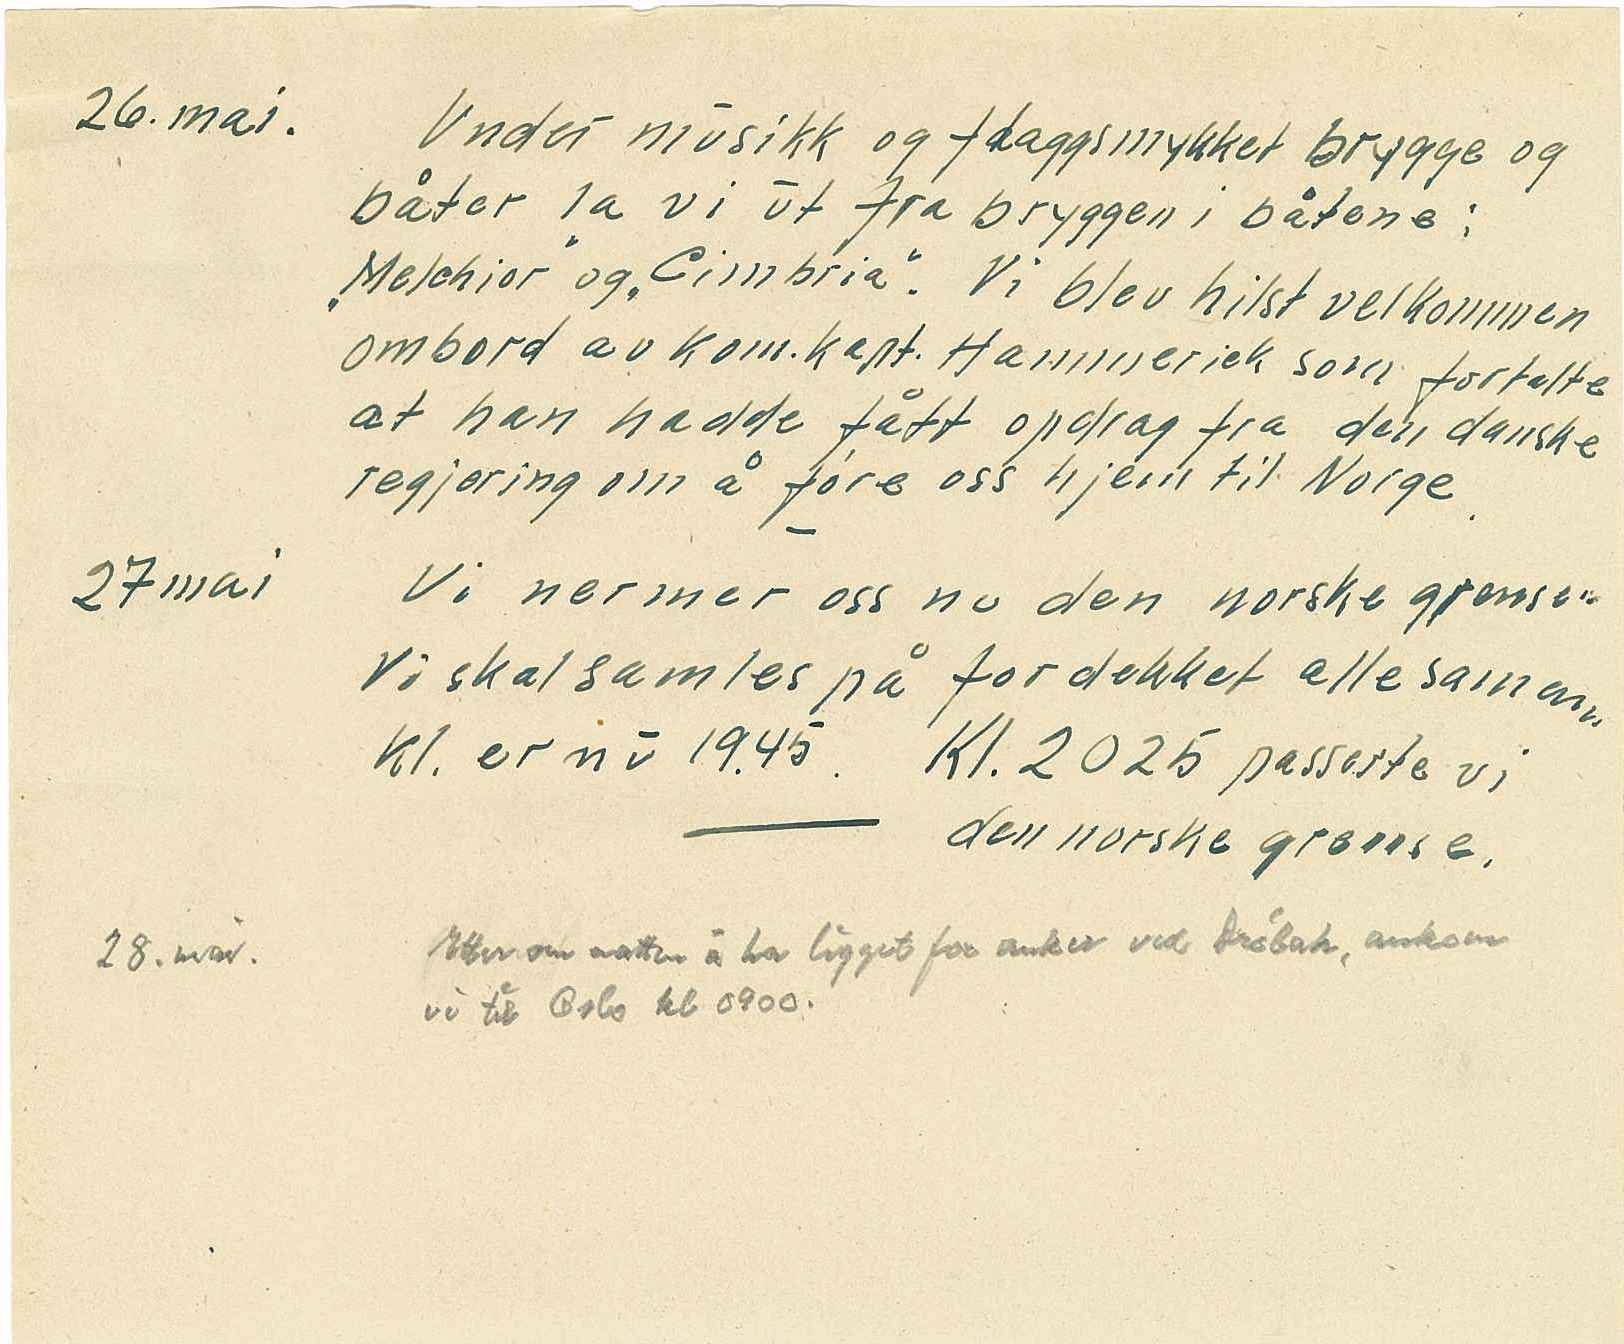 26. mai. Under musikk og flaggsmykket brygge og
båter la vi ut fra bryggen i båtene:
"Melchior" og "Cimbria". Vi blev hilst velkommen
ombord av kom.kapt. Hammerich som fortalte
at han hadde fått opdrag fra den danske
regjering om å føre oss hjem til Norge.
27 mai Vi nermer oss nu den norske grense.
Vi skal samles på fordekket alle samen.
Kl. er nu 19.45. Kl. 2025 passerte vi
den norske grense.
28. mai. Etter om natten å ha ligget for anker ved Drøbak, ankom
vi til Oslo kl 0900.